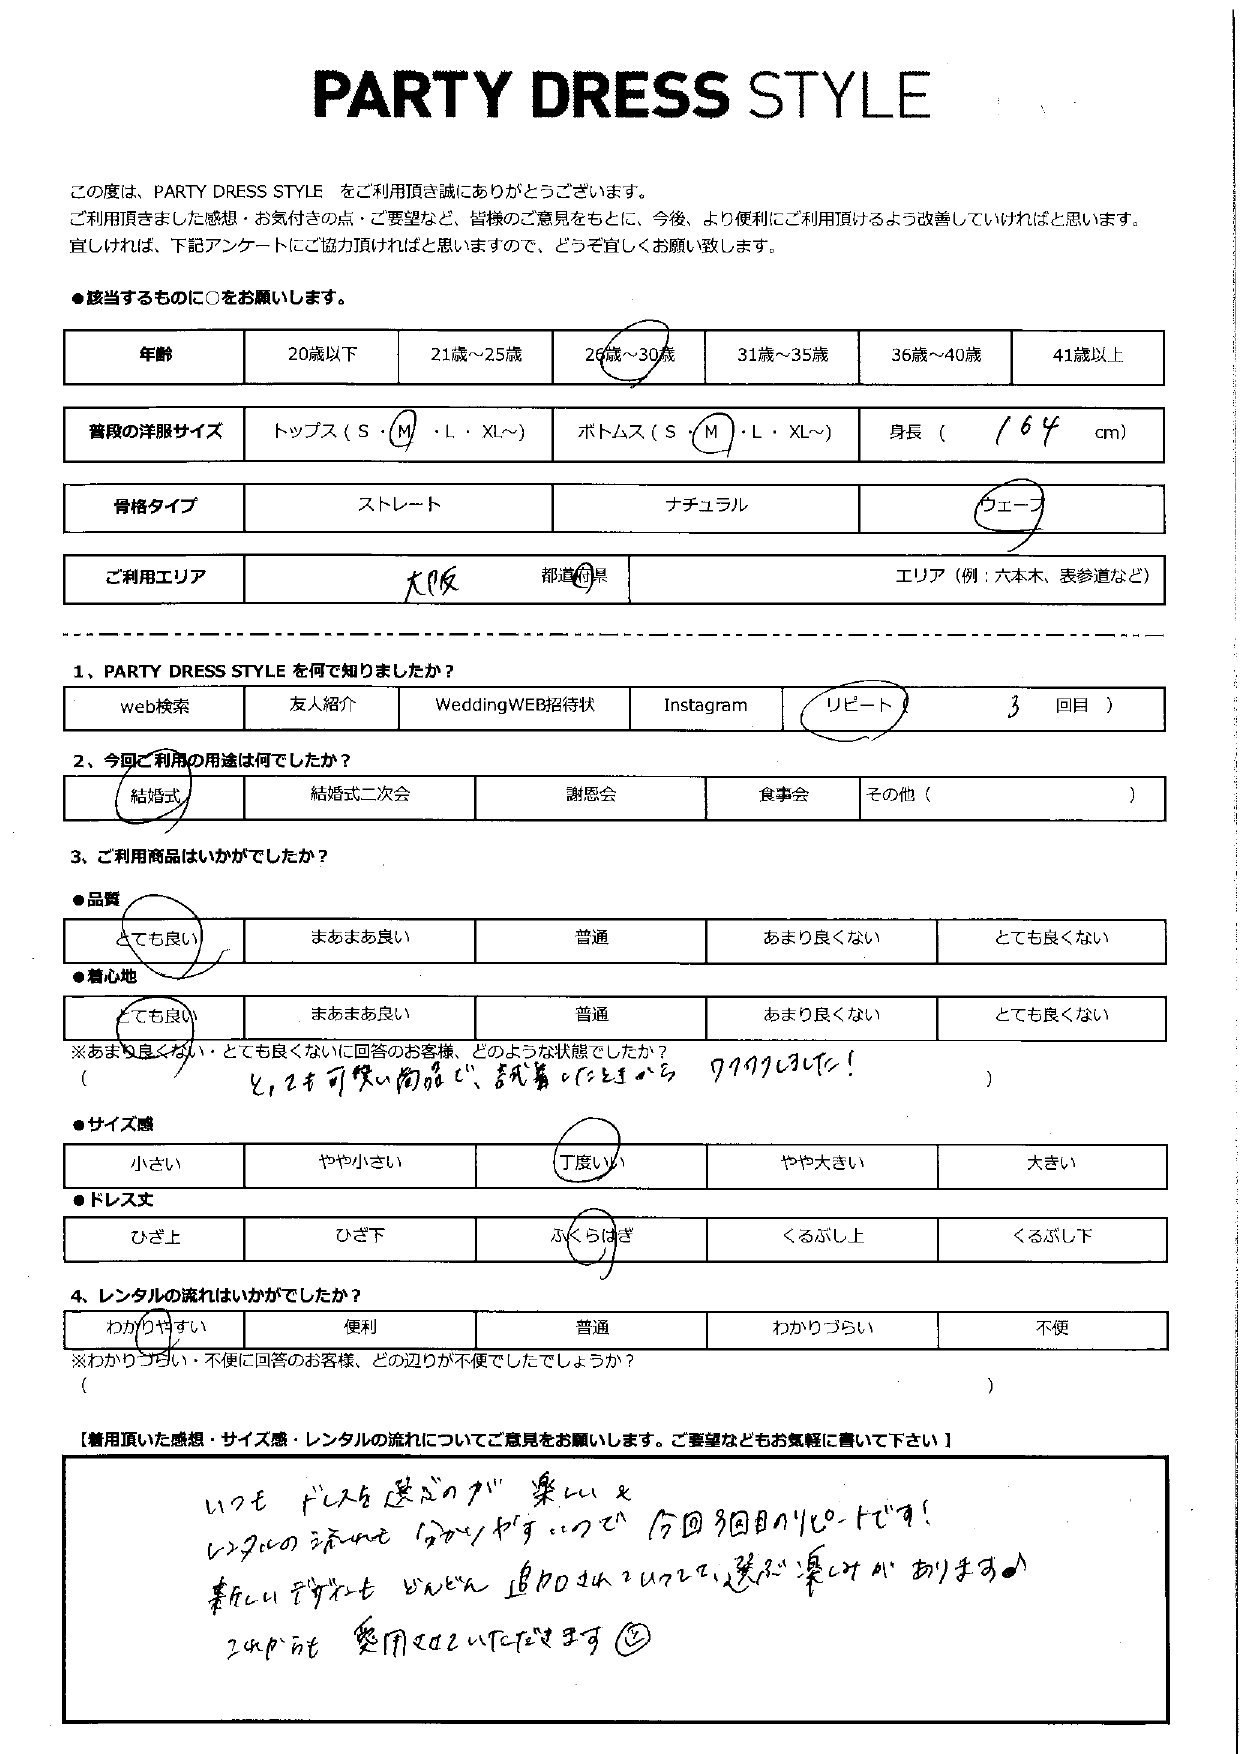 PARTY DRESS STYLE
この度は、PARTY DRESS STYLE をご利用頂き誠にありがとうございます。
ご利用頂きました感想・お気付きの点・ご要望など、皆様のご意見をもとに、今後、より便利にご利用頂けるよう改善していければと思います。
宜しければ、下記アンケートにご協力頂ければと思いますので、どうぞ宜しくお願い致します。
●該当するものに○をお願いします。
年齢 20歳以下 21歳～25歳 26歳～30歳 31歳～35歳 36歳～40歳 41歳以上
普段の洋服サイズ トップス ( S ・ M ・ L ・ XL～) ボトムス ( S ・ M ・ L ・ XL～) 身長 ( 164 cm)
骨格タイプ ストレート ナチュラル ウェーブ
ご利用エリア 大阪 都道府県 エリア（例：六本木、表参道など）
1、PARTY DRESS STYLE を何で知りましたか？
web検索 友人紹介 WeddingWEB招待状 Instagram リピート ( 3 回目 )
2、今回ご利用の用途は何でしたか？
結婚式 結婚式二次会 謝恩会 食事会 その他 ( )
3、ご利用商品はいかがでしたか？
●品質
とても良い まあまあ良い 普通 あまり良くない とても良くない
●着心地
とても良い まあまあ良い 普通 あまり良くない とても良くない
※あまり良くない・とても良くないに回答のお客様、どのような状態でしたか？
( とっても可愛い商品で、試着したときから ワクワクしました！ )
●サイズ感
小さい やや小さい 丁度いい やや大きい 大きい
●ドレス丈
ひざ上 ひざ下 ふくらはぎ くるぶし上 くるぶし下
4、レンタルの流れはいかがでしたか？
わかりやすい 便利 普通 わかりづらい 不便
※わかりづらい・不便に回答のお客様、どの辺りが不便でしたでしょうか？
( )
【着用頂いた感想・サイズ感・レンタルの流れについてご意見をお願いします。ご要望などもお気軽に書いて下さい 】
いつも ドレスを選ぶのが 楽しい&
レンタルの流れも 分かりやすいので 今回3回目のリピートです！
新しいデザインも どんどん 追加されていってて、選ぶ楽しみが あります♪
これからも 愛用させていただきます☺